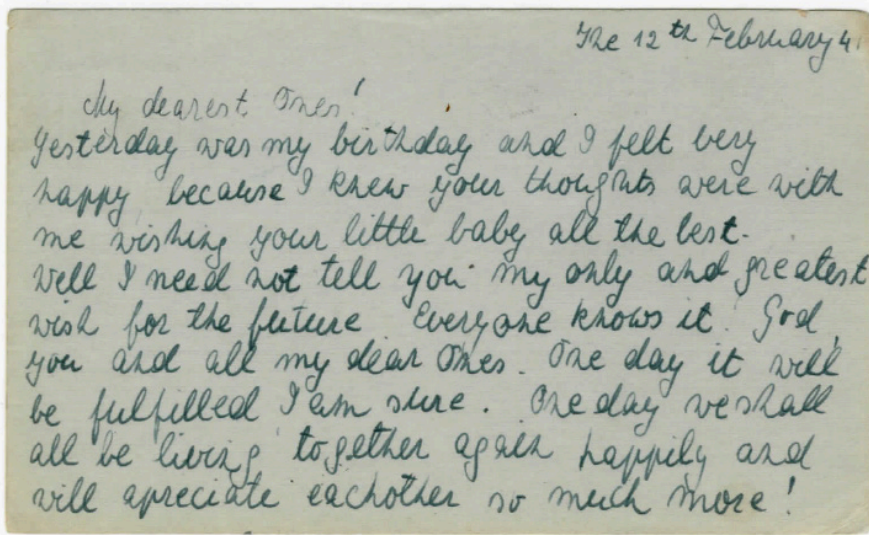 The 12th February 41
My dearest Ones!
Yesterday was my birthday and I felt very
happy because I knew your thoughts were with
me wishing your little baby all the best.
Well I need not tell you my only and greatest
wish for the future Everyone knows it. God,
you and all my dear Ones. One day it will
be fulfilled I am sure. One day we shall
all be living together again happily and
will apreciate eachother so much more!